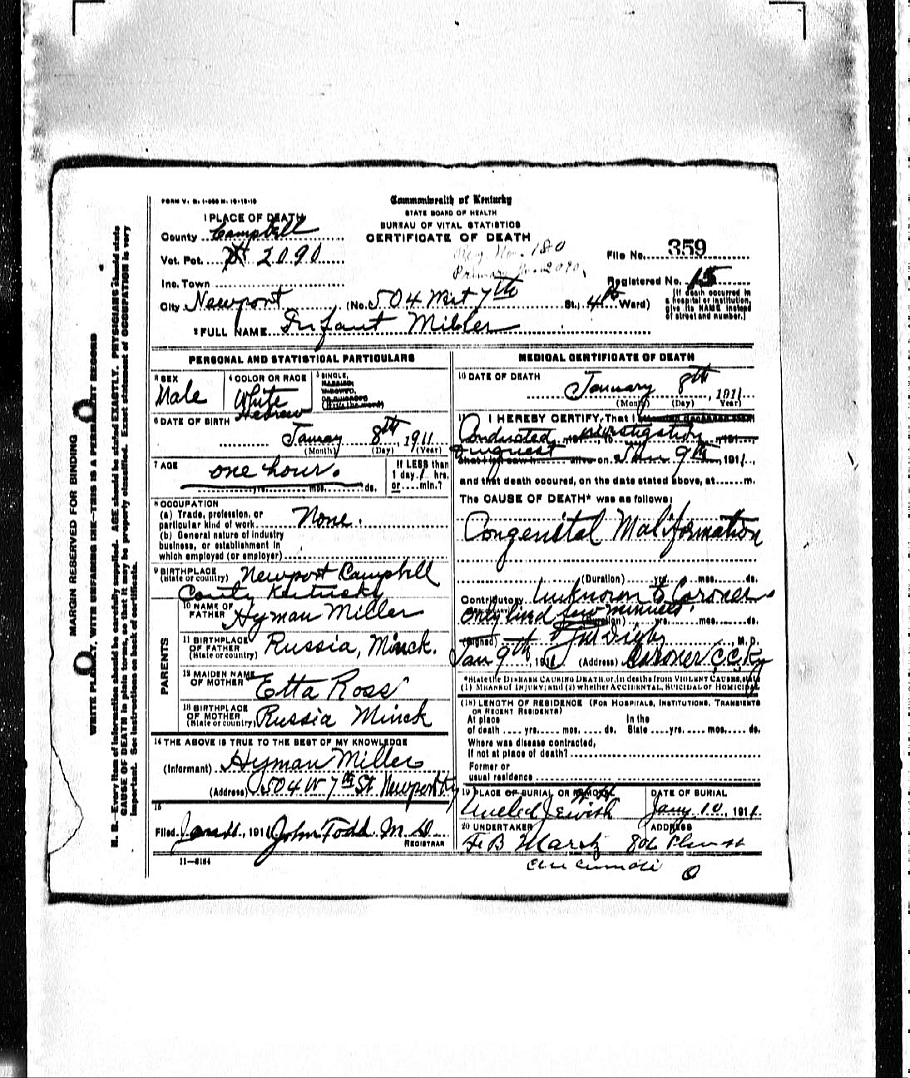 FORM V. S. 1-
Commonwealth of Kentucky
STATE BOARD OF HEALTH
BUREAU OF VITAL STATISTICS
CERTIFICATE OF DEATH
1 PLACE OF DEATH
County Campbell
Vot. Pct. 2090
Inc. Town
City Newport (No. 504 West 7th St., 4th Ward)
File No. 359
Registered No. 15
[If death occurred in a hospital or institution, give its NAME instead of street and number.]
2 FULL NAME Infant Miller
PERSONAL AND STATISTICAL PARTICULARS
3 SEX
Male
4 COLOR OR RACE
White
Hebrew
5 SINGLE,
MARRIED
WIDOWED,
OR DIVORCED
(Write the word)
6 DATE OF BIRTH
January 8th, 1911
(Month) (Day) (Year)
7 AGE
one hour.
yrs. mos. ds.
If LESS than
1 day, 1 hrs.
or min.?
8 OCCUPATION
(a) Trade, profession, or
particular kind of work None.
(b) General nature of industry
business, or establishment in
which employed (or employer)
9 BIRTHPLACE
(State or country) Newport Campbell
County Kentucky
PARENTS
10 NAME OF
FATHER Hyman Miller
11 BIRTHPLACE
OF FATHER
(State or country) Russia, Minck.
12 MAIDEN NAME
OF MOTHER Etta Ross
13 BIRTHPLACE
OF MOTHER
(State or country) Russia Minck
14 THE ABOVE IS TRUE TO THE BEST OF MY KNOWLEDGE
(Informant) Hyman Miller
(Address) 504 W 7th St Newport Ky
15
Filed 1911 John Todd M.D
REGISTRAR
11-6184
MEDICAL CERTIFICATE OF DEATH
16 DATE OF DEATH
January 8th, 1911
(Month) (Day) (Year)
17 I HEREBY CERTIFY, That I
Conducted investigation
Inquest on Jan 9th, 1911
and that death occured, on the date stated above, at m.
The CAUSE OF DEATH* was as follows:
Congenital Maliformation
(Duration) yrs. mos. ds.
Contributory Unknown to Coroner.
only lived few minutes.
(Duration) yrs. mos. ds.
(Signed) M. D.
Jan 9th, 1911 (Address) Coroner C.C. Ky
*State the DISEASE CAUSING DEATH, or, in deaths from VIOLENT CAUSES, state
(1) MEANS OF INJURY; and (2) whether ACCIDENTAL, SUICIDAL OR HOMICIDAL
(18) LENGTH OF RESIDENCE (FOR HOSPITALS, INSTITUTIONS, TRANSIENTS
OR RECENT RESIDENTS)
At place In the
of death yrs. mos. ds. State yrs. mos. ds.
Where was disease contracted,
if not at place of death?
Former or
usual residence
19 PLACE OF BURIAL OR REMOVAL
United Jewish
DATE OF BURIAL
Jany 10, 1911
20 UNDERTAKER
ADDRESS
Cincinnati O
MARGIN RESERVED FOR BINDING
WRITE PLAINLY, WITH UNFADING INK—THIS IS A PERMANENT RECORD
N. B.—Every item of information should be carefully supplied. AGE should be stated EXACTLY. PHYSICIANS should state
CAUSE OF DEATH in plain terms, so that it may be properly classified. Exact statement of OCCUPATION is very
important. See instructions on back of certificate.